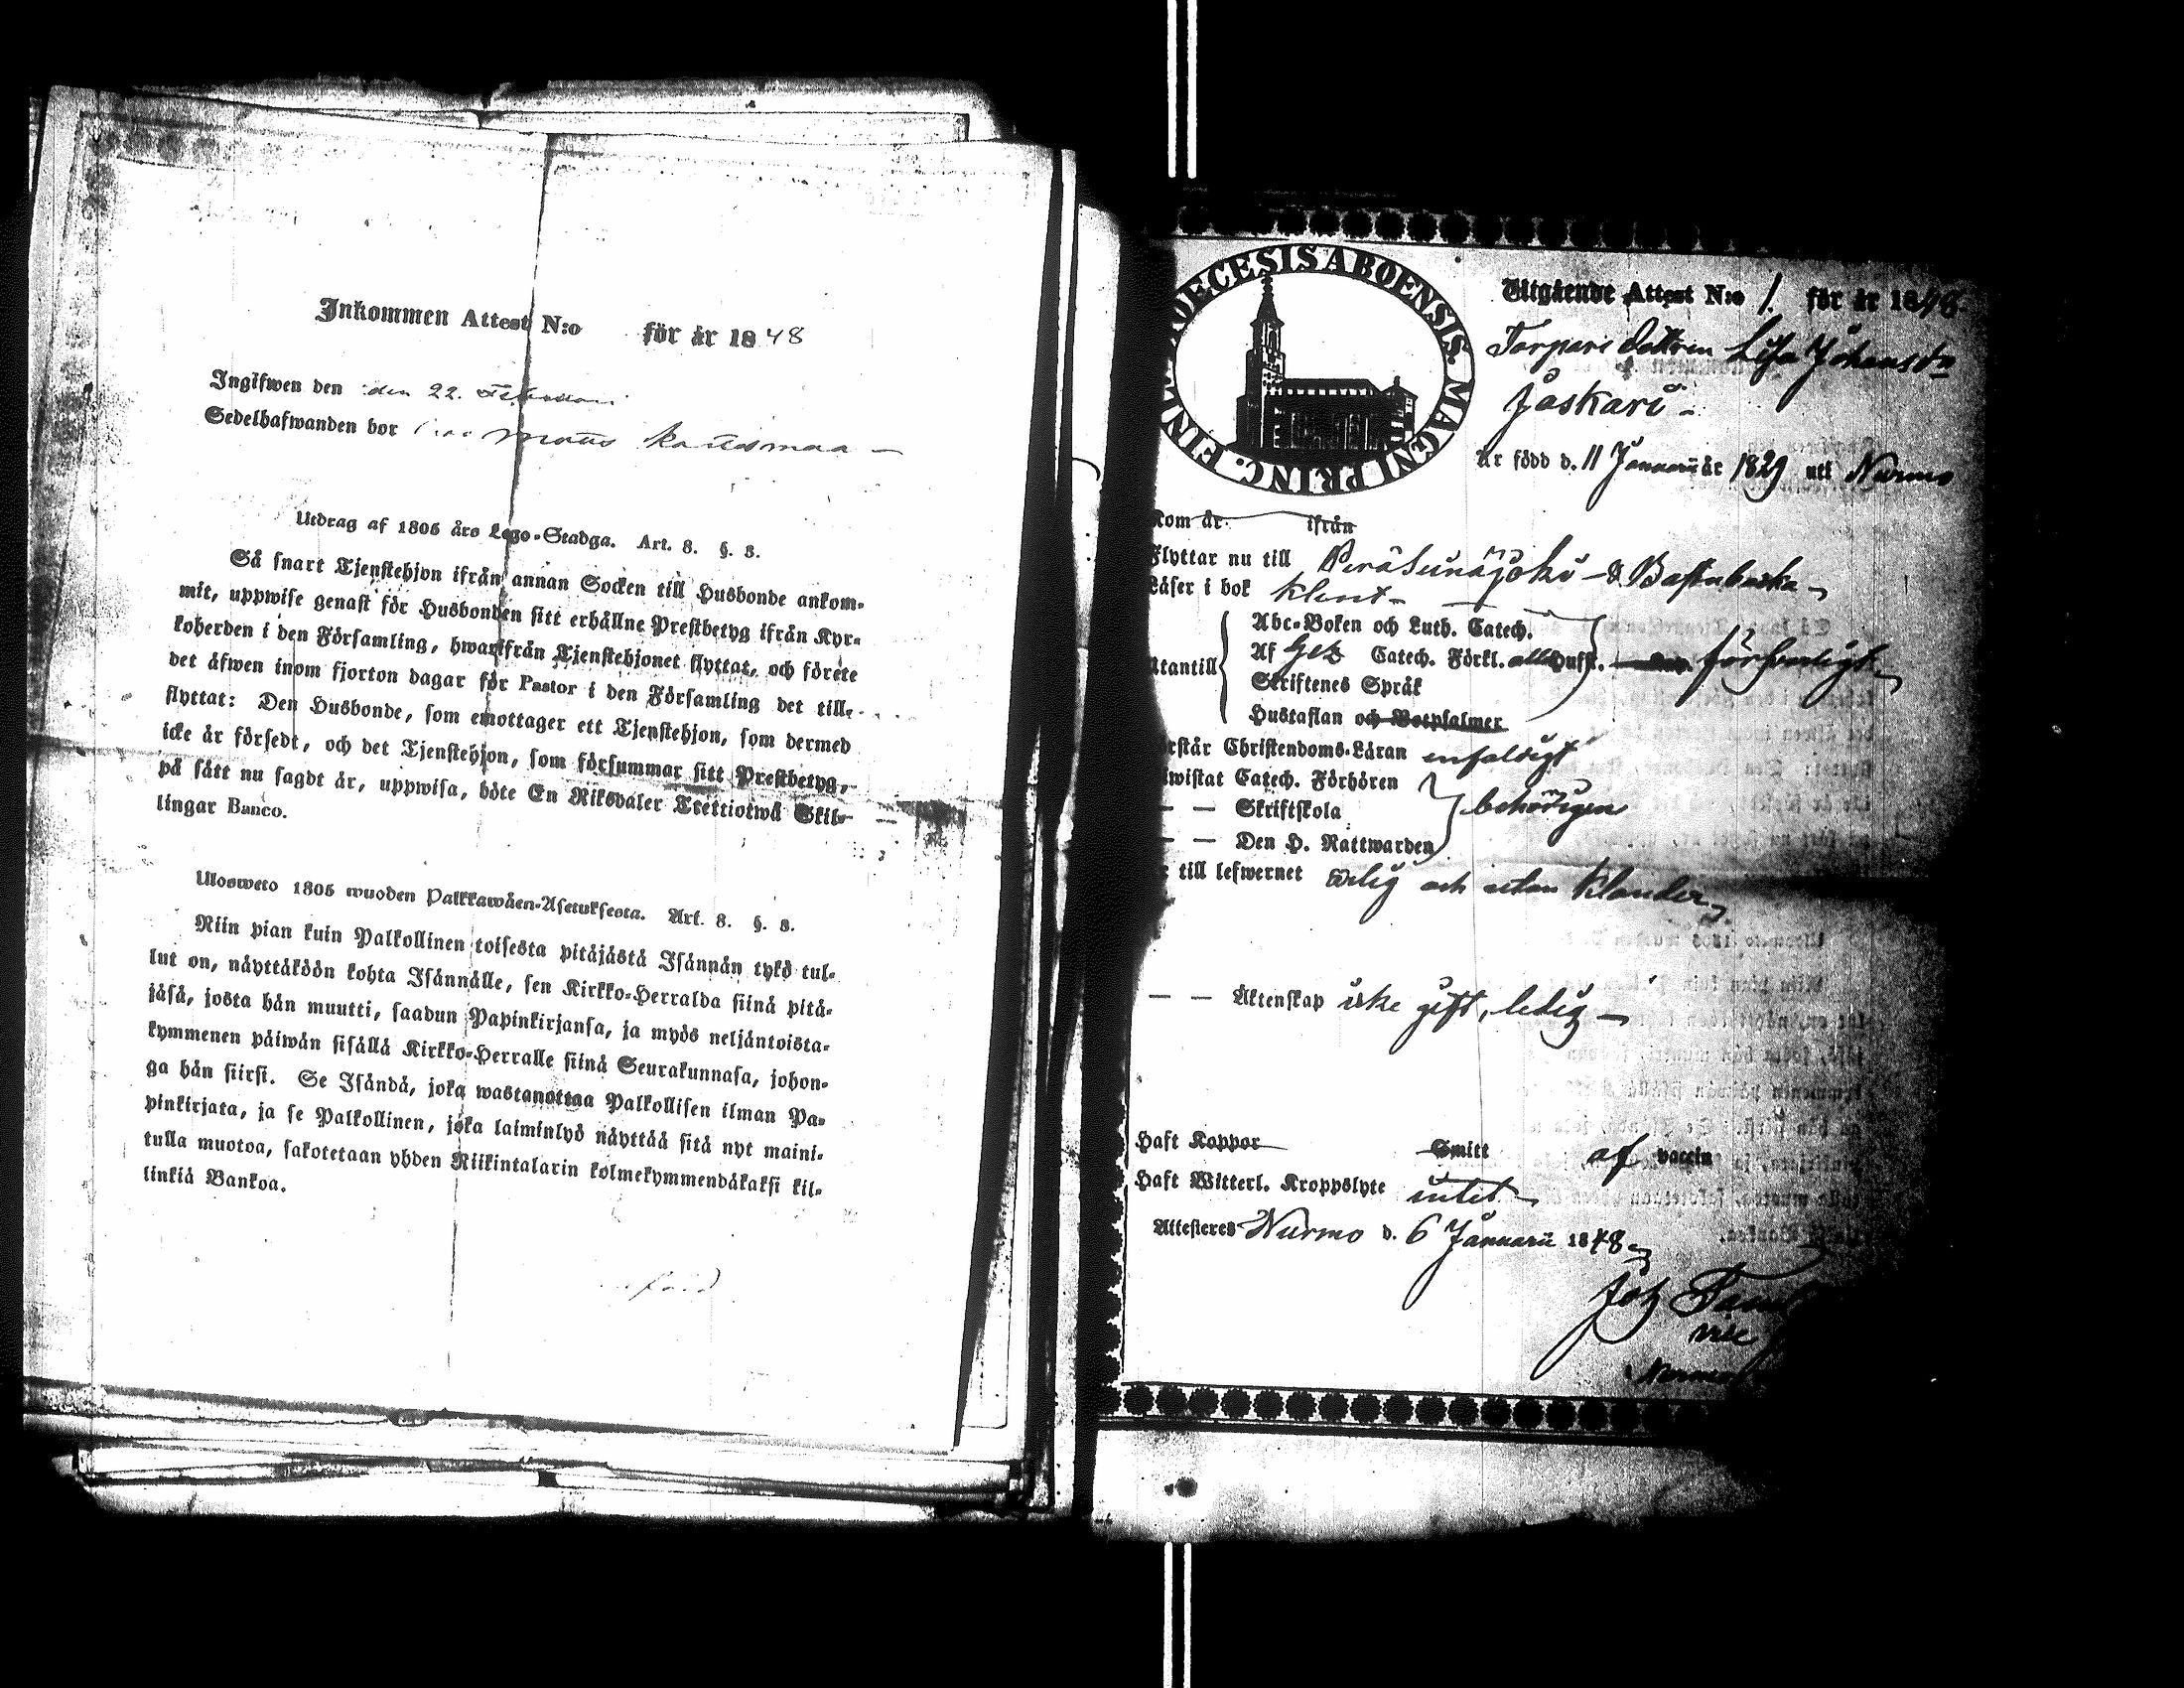 Inkommen Attest N:o för år 1848
Ingifwen den den 22. Februari
Sedelhafwanden bor Matts
Utdrag af 1805 års Lego-Stadga. Art. 8. §. 3.
Så snart Tjenstehjon ifrån annan Socken till Husbonde ankom-
mit, uppwise genast för Husbonden sitt erhållne Prestbetyg ifrån Kyr-
koherden i den Församling, hwarifrån Tjenstehjonet flyttat, och förete
det äfwen inom fjorton dagar för Pastor i den Församling det till-
flyttat: Den Husbonde, som emottager ett Tjenstehjon, som dermed
icke är försedt, och det Tjenstehjon, som försummar sitt Prestbetyg,
på sätt nu sagdt är, uppwisa, böte En Riksdaler Trettiotwå Skil-
lingar Banco.
Ulosweto 1805 wuoden Palkkawäen-Asetuksesta. Art. 8. §. 3.
Niin pian kuin Palkollinen toisesta pitäjästä Isännän tykö tul-
lut on, näyttäköön kohta Isännälle, sen Kirkko-Herralda siinä pitä-
jäsä, josta hän muutti, saadun Papinkirjansa, ja myös neljäntoista-
kymmenen päiwän sisällä Kirkko-Herralle siinä Seurakunnasa, johon-
ga hän siirsi. Se Isändä, joka wastanottaa Palkollisen ilman Pa-
pinkirjata, ja se Palkollinen, joka laiminlyö näyttää sitä nyt maini-
tulla muotoa, sakotetaan yhden Riikintalarin kolmekymmendäkaksi kil-
linkiä Bankoa.
DIOECESIS ABOENSIS. MAGNI PRINC. FINL.
Utgående Attest N:o 1. för år 1848
Torpare dottren Lisa Johansdr
Jåskari
Är född d. 11 Januarii år 1829 uti Nurmo
Kom år ifrån
Flyttar nu till Peräseinäjoki
Läser i bok klent
Utantill Abc-Boken och Luth. Catech.
Af Gez Catech. Förkl. alla Hufst. försvarligt
Skriftenes Språk
Hustaflan och Botpsalmer
Förstår Christendoms-Läran enfaldigt
Biwistat Catech. Förhören
— — Skriftskola behörigen
— — Den H. Nattwarden
Är till lefwernet ärlig och utan klander
— — Äktenskap icke gift, ledig
Haft Koppor Smitt af vaccin
Haft Witterl. Kroppslyte intet
Attesteres Nurmo d. 6 Januarii 1848
Joh
vice
Nurmo